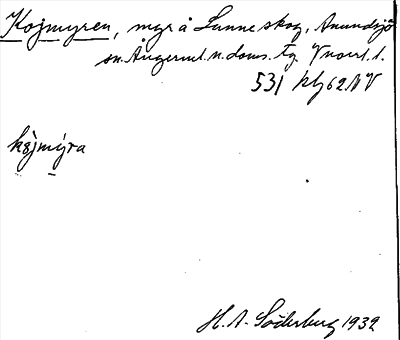 Kojmyren, myr å Lunne skog, Anundsjö
sn. Ångerml. n. doms. tg. Vnorrl. l.
531 klf 62 NV
kåjmýra
H. A. Söderberg 1932